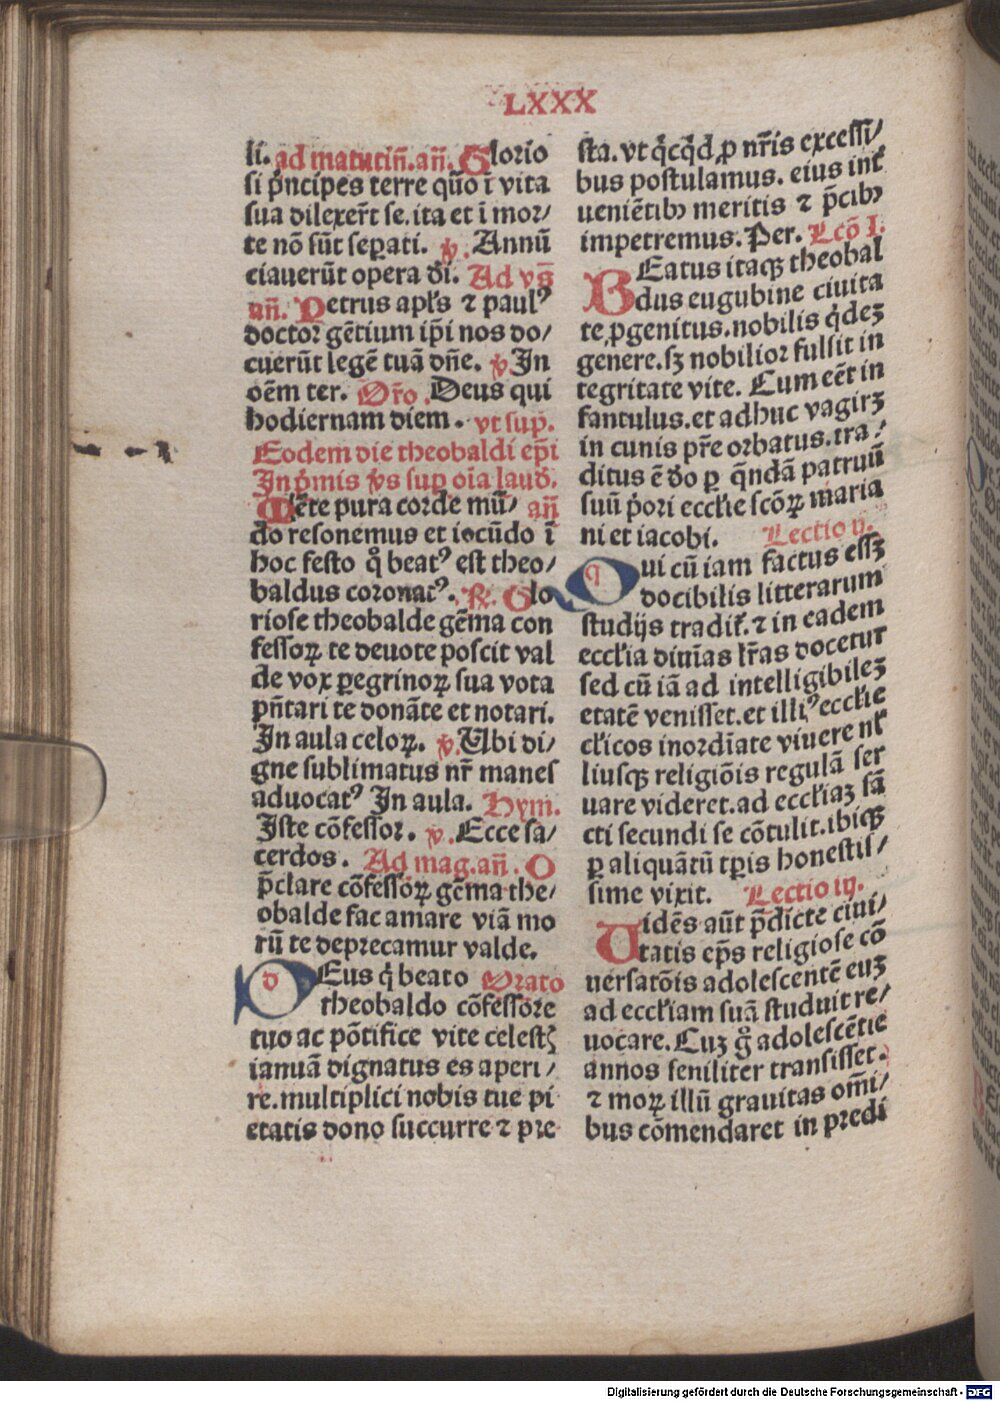 LXXX
li. ad matutiñ. añ. Glorio
si p̄ncipes terre quō ī vita
sua dilexer̄t se. ita et ī mor/
te nō sūt seꝑati. ꝟ. Annū
ciauerūt opera dei. Ad vs̄
añ. Petrus apl̄s ⁊ paulꝰ
doctor gētium ip̄i nos do/
cuerūt legē tuā dn̄e. ꝟ In
oēm ter. Or̄o. Deus qui
hodiernam diem. vt sup̄.
Eodem die theobaldi ep̄i
In p̄mis v̄s sup oīa laud̄.
Mēte pura corde mū/ añ
do resonemus et iocūdo ī
hoc festo q̊ beatꝰ est theo/
baldus coronatꝰ. ꝶ. Glo
riose theobalde gēma con
fessoꝝ te deuote poscit val
de vox ꝑegrinoꝝ sua vota
pn̄tari te donāte et notari.
In aula celoꝝ. ꝟ. Ubi di/
gne sublimatus nr̄ manes
aduocatꝰ In aula. Hym.
Iste cōfessor. ꝟ. Ecce sa/
cerdos. Ad mag. añ. O
p̄clare cōfessoꝝ gēma the/
obalde fac amare viā mo
rū te deprecamur valde.
DEus q̇ beato Orato
theobaldo cōfessore
tuo ac pōtifice vite celestꝭ
ianuā dignatus es aperi/
re. multiplici nobis tue pi
etatis dono succurre ⁊ pre
sta. vt q̇cq̇d ꝓ nr̄is excessi/
bus postulamus. eius int̄
ueniētibꝫ meritis ⁊ p̄cibꝫ
impetremus. Per. Lcō I.
BEatus itaqꝫ theobal
dus eugubine ciuita
te ꝓgenitus. nobilis q̇deꝫ
genere. sꝫ nobilior fulsit in
tegritate vite. Cum eēt in
fantulus. et adhuc vagirꝫ
in cunis pr̄e orbatus. tra/
ditus ē do ꝑ q̄ndā patruū
suū p̄ori eccl̄ie scōꝝ maria
ni et iacobi. Lectio ij.
Qui cū iam factus essꝫ
docibilis litterarum
studijs tradit̄. ⁊ in eadem
eccl̄ia diuīas lr̄as docetur
sed cū iā ad intelligibileꝫ
etatē venisset. et illiꝰ eccl̄ie
cl̄icos inordīate viuere nl̄
liusqꝫ religiōis regulā ser
uare videret. ad eccl̄iaꝫ sā
cti secundi se cōtulit. ibiqꝫ
ꝑ aliquātū tꝑis honestis/
sime vixit. Lectio iij.
Uidēs aūt p̄dicte ciui/
tatis ep̄s religiose cō
uersatōis adolescentē euꝫ
ad eccl̄iam suā studuit re/
uocare. Cuꝫ g̊ adolescētie
annos seniliter transisset.
⁊ moꝝ illū grauitas om̄i/
bus cōmendaret in predi
Digitalisierung gefördert durch die Deutsche Forschungsgemeinschaft - DFG